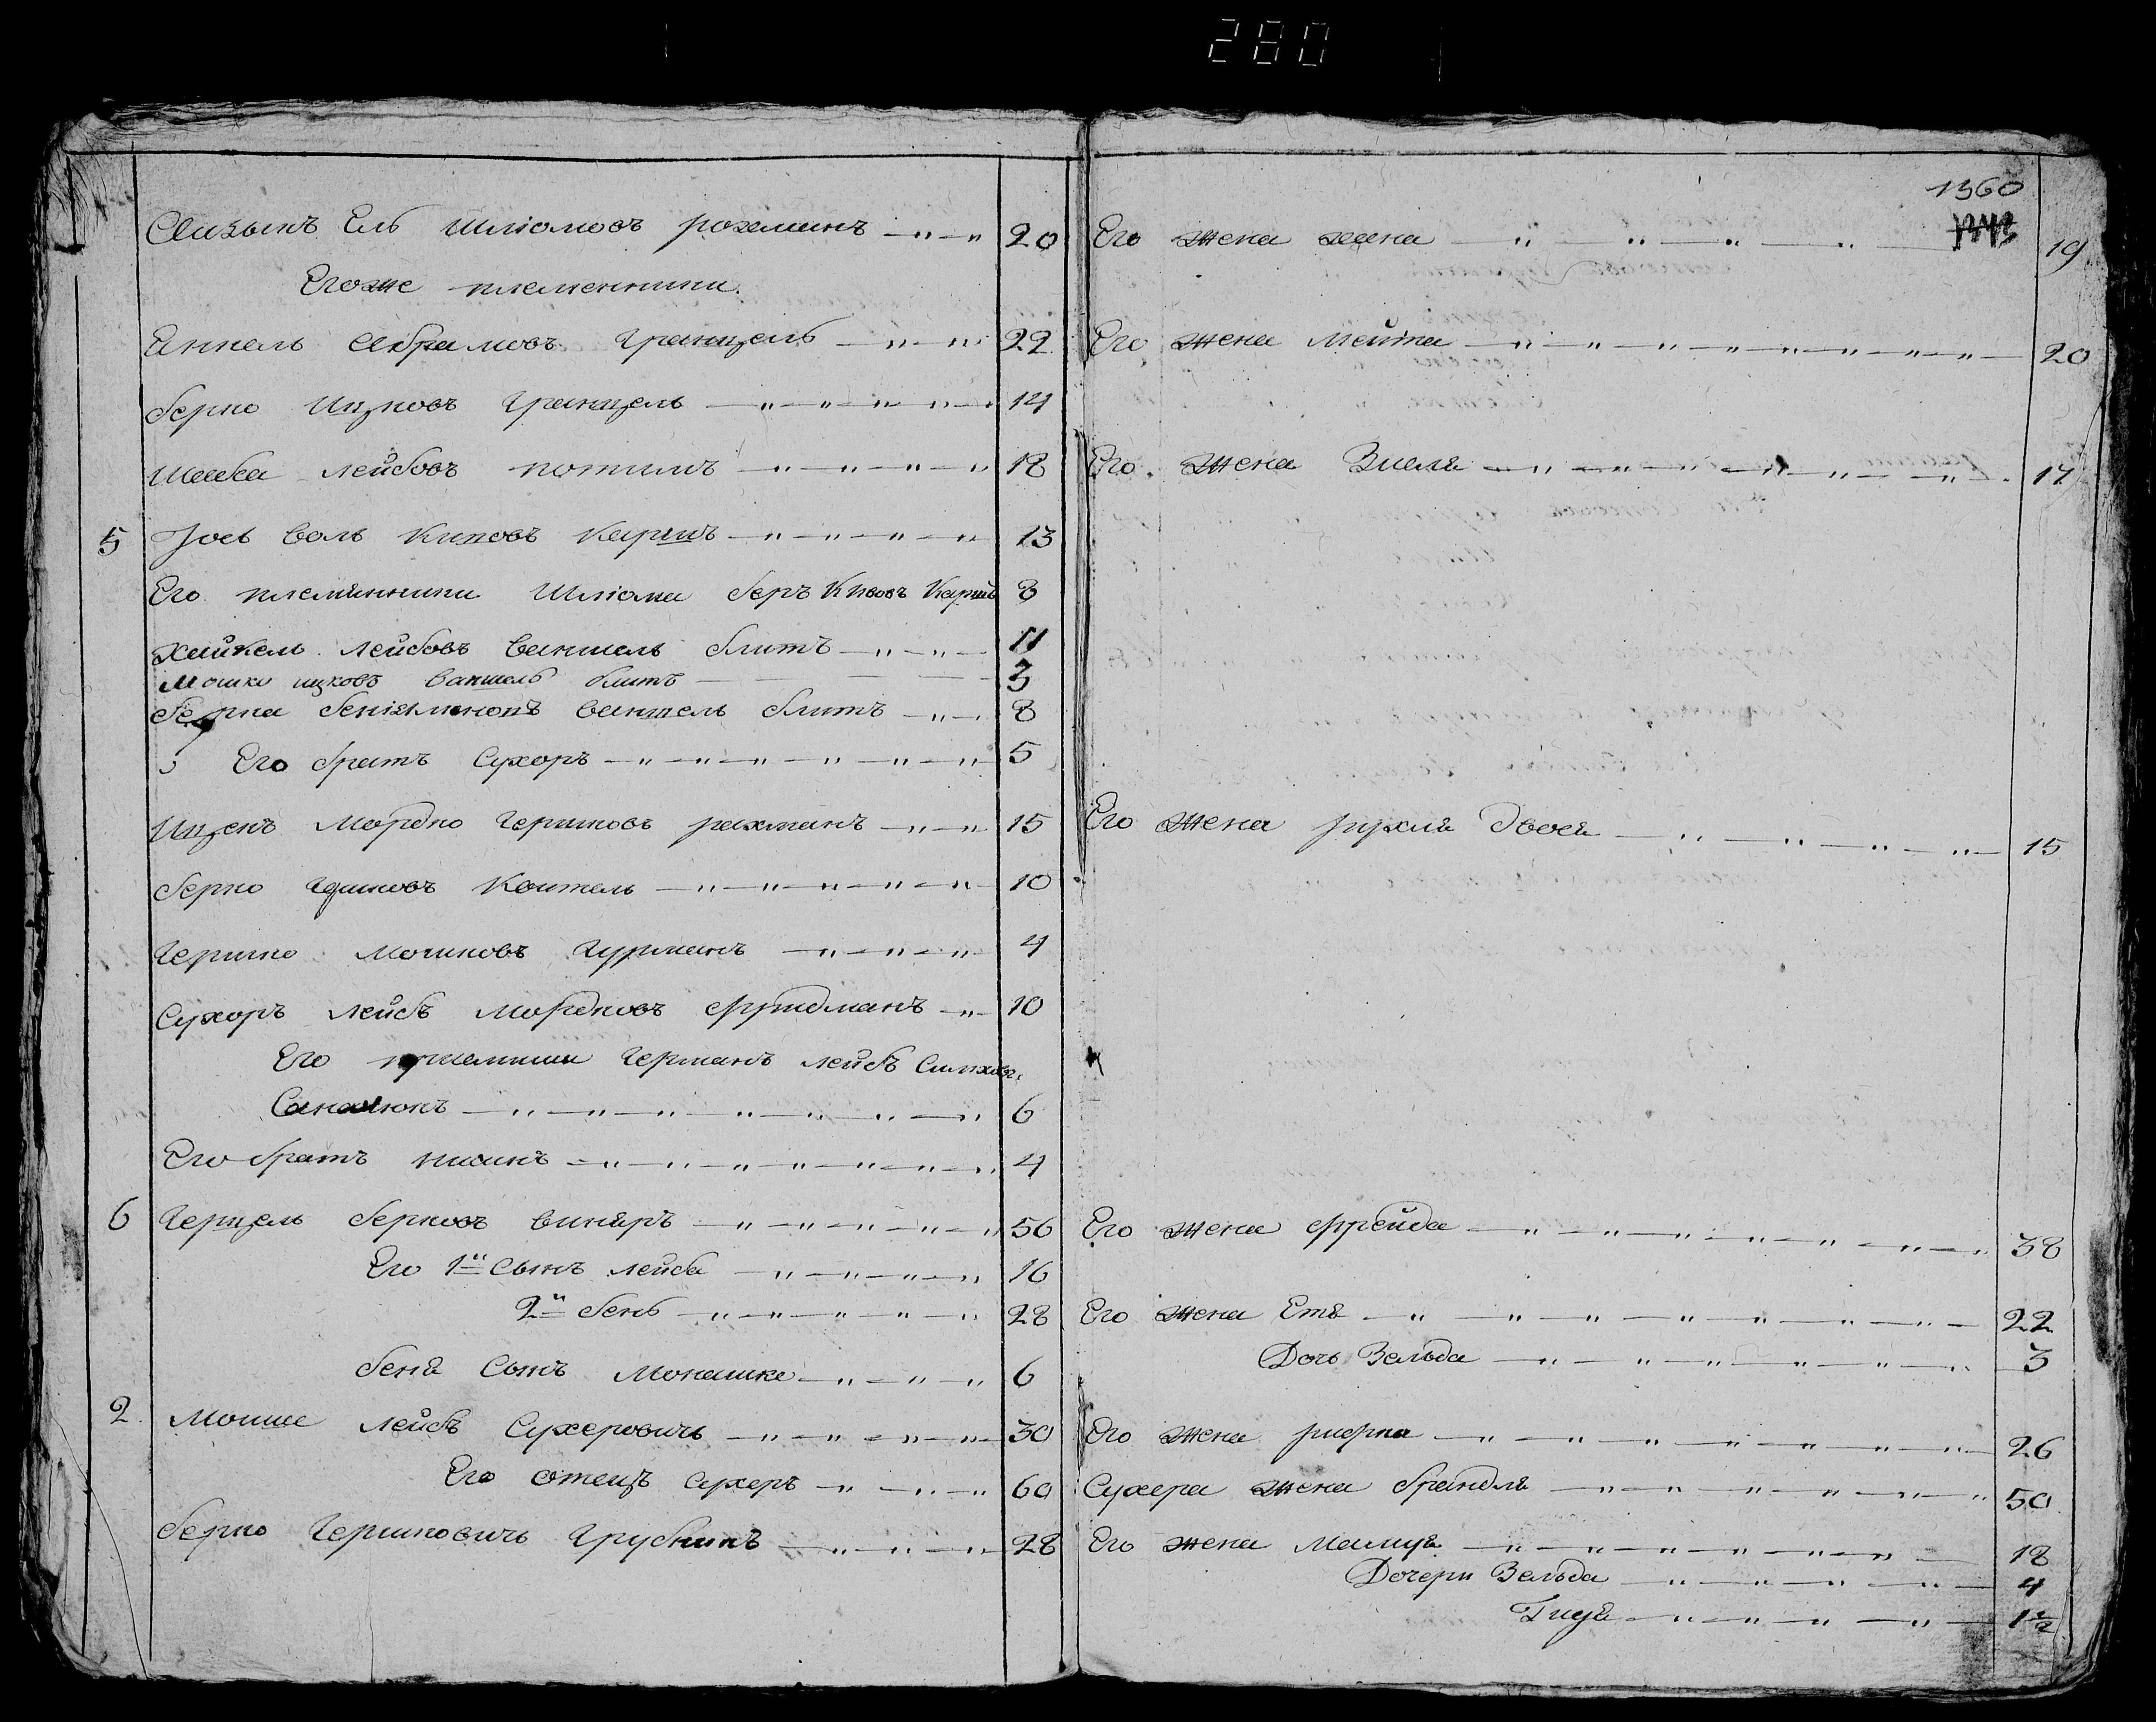 280
1360
Ель Шліомовъ рохманъ 20
Егоже племенники
Янкель Абрамовъ Гранцель 22
Берко Ицковъ Гранцель 14
Шавка Лейбовъ 18
5 Іось воль Киповъ Карпъ 13
Его племянники Шліома беръ Карпъ 8
Хайкель Лейбовъ ваншель блитъ 11
Мошко ицковъ ваншель блитъ 3
Берка беніаминовъ ваншель блитъ 8
Его братъ Сухоръ 5
Ицекъ Мордко Гершковъ рахманъ 15
Берко Койтель 10
Гершко Мошковъ Гурманъ 4
Сухоръ Лейбъ Мордковъ фридманъ 10
Его Германъ Лейбъ
6
Его братъ нисинъ 4
6 Герцель берковъ виняръ 56
Его 1й Сынъ лейба 16
2й бень 28
беня Сынъ Монашке 6
2 Мошше Лейбъ Сухеровичъ 30
Его отецъ Сухеръ 60
Берко Гершковичъ Грубникъ 28
Его жена хана 19
Его жена Мейта 20
Его жена 17
Его жена рухля двося 15
Его жена фрейда 38
Его жена Етя 22
Дочь Зельда 3
Его жена рифка 26
Сухера жена брандля 50
Его жена Малця 18
Дочери Зельда 4
Гиця 1½